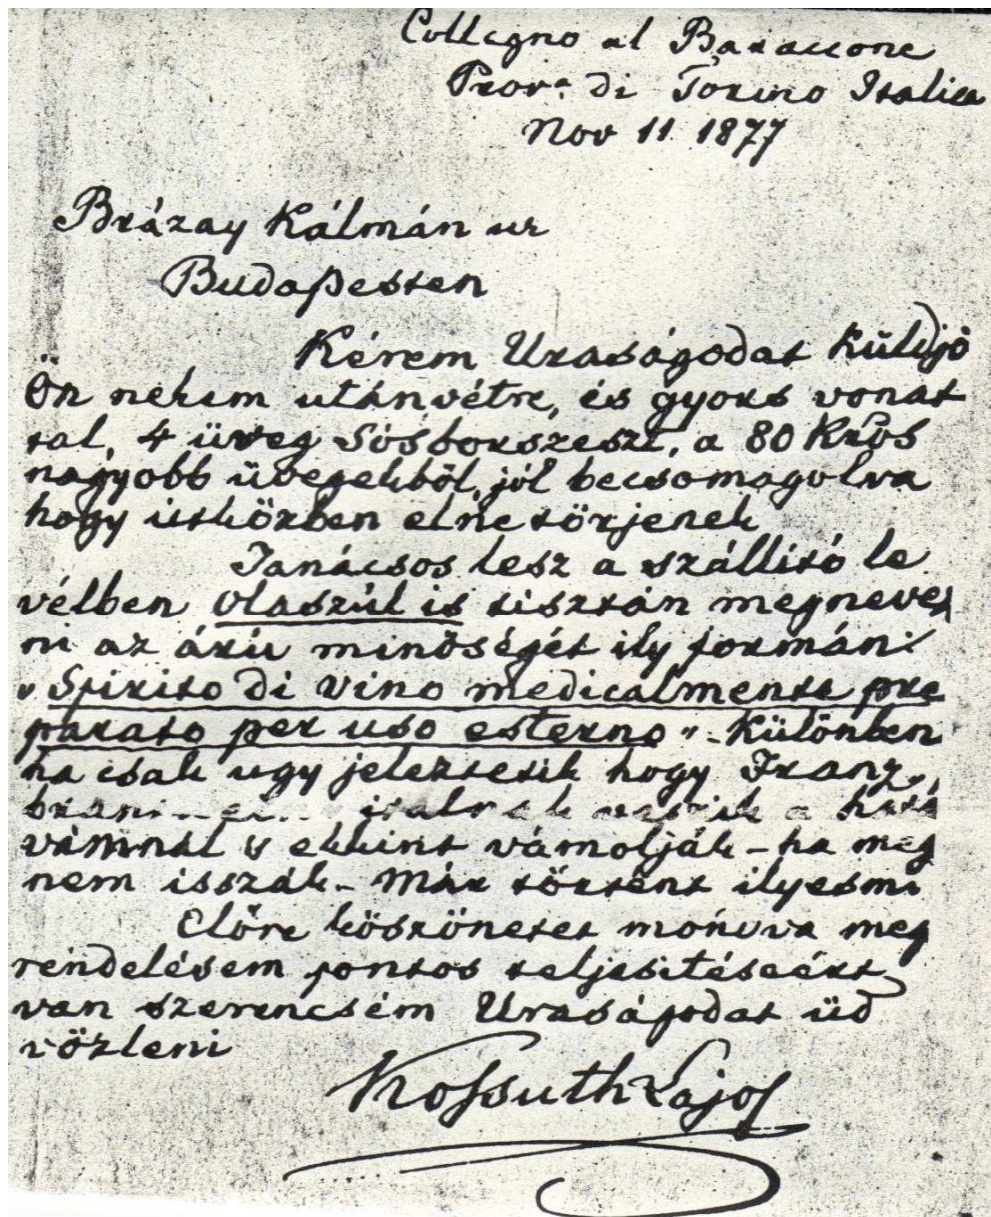 Collegno al Baraccone
Prov.ª di Torino Italia
Nov 11 1877
Brázay Kálmán ur
Budapesten
Kérem Uraságodat küldjö
Ön nekem utánvétre, és gyors vonat
tal, 4 üveg Sósborszeszt, a 80 Kros
nagyobb üvegekböl, jól becsomagolva
hogy utközben elne törjenek
Tanácsos lesz a szállitó le
vélben olaszúl is tisztán megnevez
ni az árú minöségét ily formán:
"Spirito di vino medicalmente pre
parato per uso esterno" - Különben
ha csak ugy jeleztetik hogy Franz
italnak veszik a
vámnál s ekkint vámolják - ha meg
nem isszák - Már történt ilyesmi
Elöre köszönetet mondva meg
rendelésem pontos teljesitéseért
van szerencsém Uraságodat üd
vözleni
Kossuth Lajos